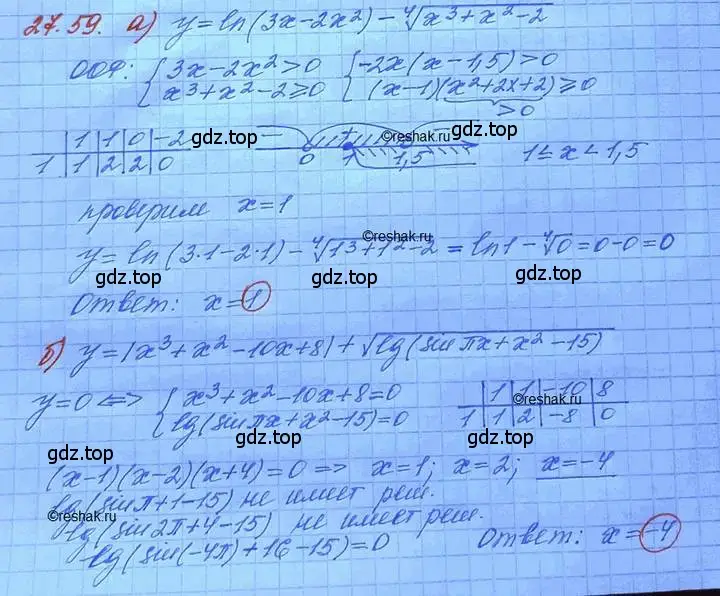 27.59. а) y = ln(3x-2x²) - ⁴√(x³+x²-2)
ООФ: { 3x-2x²>0 { -2x(x-1,5)>0
x³+x²-2≥0 (x-1)(x²+2x+2)≥0
>0
1 1 0 -2 gdz.top — + ©reshak.ru gdz.top —
1 1 2 2 0 0 1 1,5 1≤x<1,5
проверим x=1
©reshak.ru
y = ln(3·1-2·1) - ⁴√(1³+1²-2) = ln1 - ⁴√0 = 0-0 = 0
gdz.top gdz.top gdz.top
Ответ: x=1
б) y=|x³+x²-10x+8|+√lg(sin πx+x²-15)
y=0 <=> { x³+x²-10x+8=0 1 1 -10 8
©reshak.ru
lg(sin πx+x²-15)=0 1 1 2 -8 0
gdz.top gdz.top gdz.top
(x-1)(x-2)(x+4)=0 => x=1; x=2; x=-4
lg(sin π+1-15) не имеет реш.
©reshak.ru
lg(sin 2π+4-15) не имеет реш.
lg(sin(-4π)+16-15)=0 Ответ: x=-4
gdz.top gdz.top gdz.top